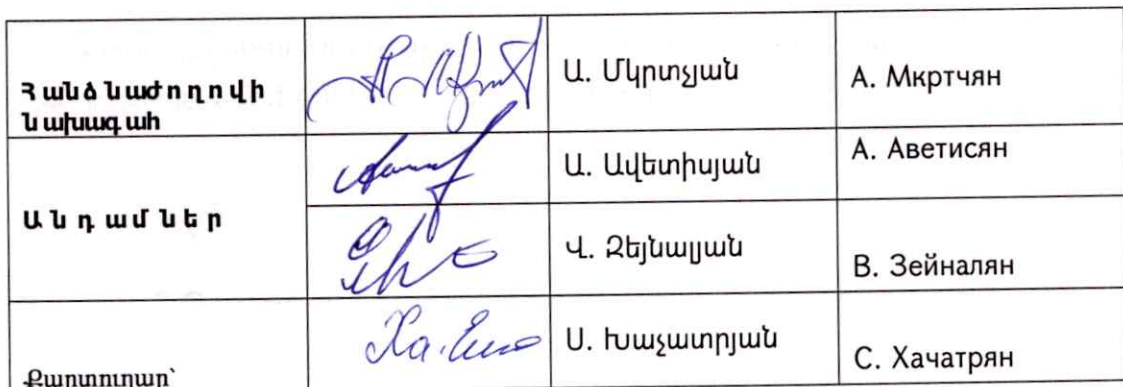 Հանձնաժողովի
նախագահ
Ա. Մկրտչյան
А. Мкртчян
Անդամներ
Ա. Ավետիսյան
А. Аветисян
Վ. Զեյնալյան
В. Зейналян
Քարտուղար՝
Ս. Խաչատրյան
С. Хачатрян